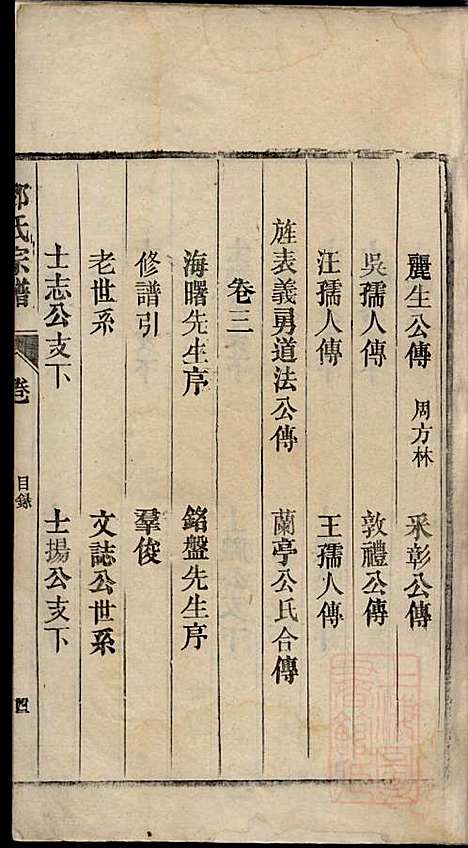 麗生公傳 周方林 釆彰公傳
吳孺人傳 敦禮公傳
汪孺人傳 王孺人傳
旌表義勇道法公傳 蘭亭公氏合傳
卷三
海曙先生序 銘盤先生序
修譜引 羣俊
老世系 文誌公世系
士志公支下 士揚公支下
氏宗譜 卷 目錄 四